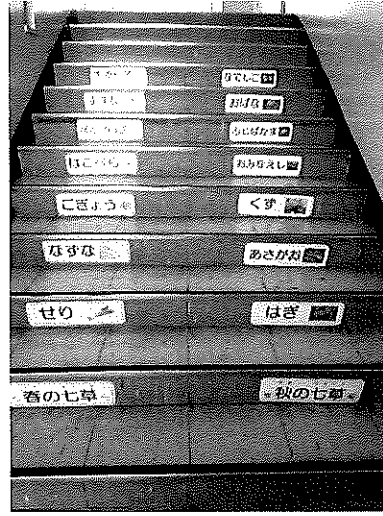 なでしこ
おばな
ふじばかま
はこべら
おみなえし
ごぎょう
くず
なずな
あさがお
せり
はぎ
春の七草
秋の七草